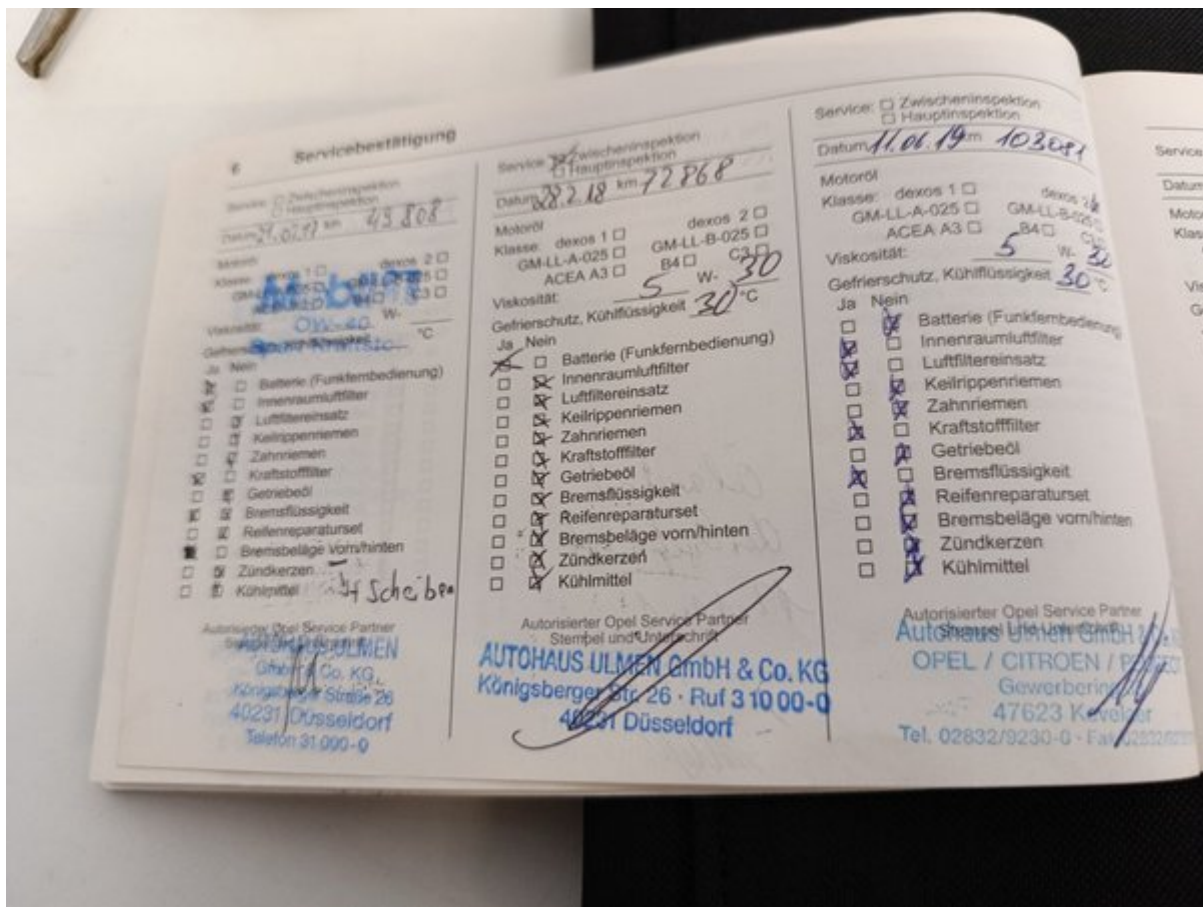 6 Servicebestätigung
Service: □ Zwischeninspektion
□ Hauptinspektion
Datum km 43 808
Motoröl
Klasse: dexos 1 □ dexos 2 □
C3 □
Viskosität: OW-40 W-
°C
Ja Nein
Batterie (Funkfernbedienung)
Innenraumluftfilter
Luftfiltereinsatz
Keilrippenriemen
Zahnriemen
Kraftstofffilter
Getriebeöl
Bremsflüssigkeit
Reifenreparaturset
Bremsbeläge vorn/hinten
Zündkerzen
Kühlmittel + Scheiben
Autorisierter Opel Service Partner
AUTOHAUS ULMEN
GmbH & Co. KG
Königsberger Straße 26
40231 Düsseldorf
Telefon 31 000-0
Service: Zwischeninspektion
□ Hauptinspektion
Datum 28.2.18 km 72868
Motoröl
Klasse: dexos 1 □ dexos 2 □
GM-LL-A-025 □ GM-LL-B-025 □
ACEA A3 □ B4 □ C3 □
Viskosität: 5 W- 30
Gefrierschutz, Kühlflüssigkeit 30 °C
Ja Nein
Batterie (Funkfernbedienung)
Innenraumluftfilter
Luftfiltereinsatz
Keilrippenriemen
Zahnriemen
Kraftstofffilter
Getriebeöl
Bremsflüssigkeit
Reifenreparaturset
Bremsbeläge vorn/hinten
Zündkerzen
Kühlmittel
Autorisierter Opel Service Partner
Stempel und Unterschrift
AUTOHAUS ULMEN GmbH & Co. KG
Königsberger Str. 26 · Ruf 3 10 00-0
40231 Düsseldorf
Service: □ Zwischeninspektion
□ Hauptinspektion
Datum 11.06.19 km 103081
Motoröl
Klasse: dexos 1 □ dexos 2
GM-LL-A-025 □ GM-LL-B-025 □
ACEA A3 □ B4 □ C3
Viskosität: 5 W- 30
Gefrierschutz, Kühlflüssigkeit 30 °C
Ja Nein
Batterie (Funkfernbedienung)
Innenraumluftfilter
Luftfiltereinsatz
Keilrippenriemen
Zahnriemen
Kraftstofffilter
Getriebeöl
Bremsflüssigkeit
Reifenreparaturset
Bremsbeläge vorn/hinten
Zündkerzen
Kühlmittel
Autorisierter Opel Service Partner
Autohaus Ulmen GmbH
OPEL / CITROEN /
Gewerbering
47623 Kevelaer
Tel. 02832/9230-0 · Fax
Service